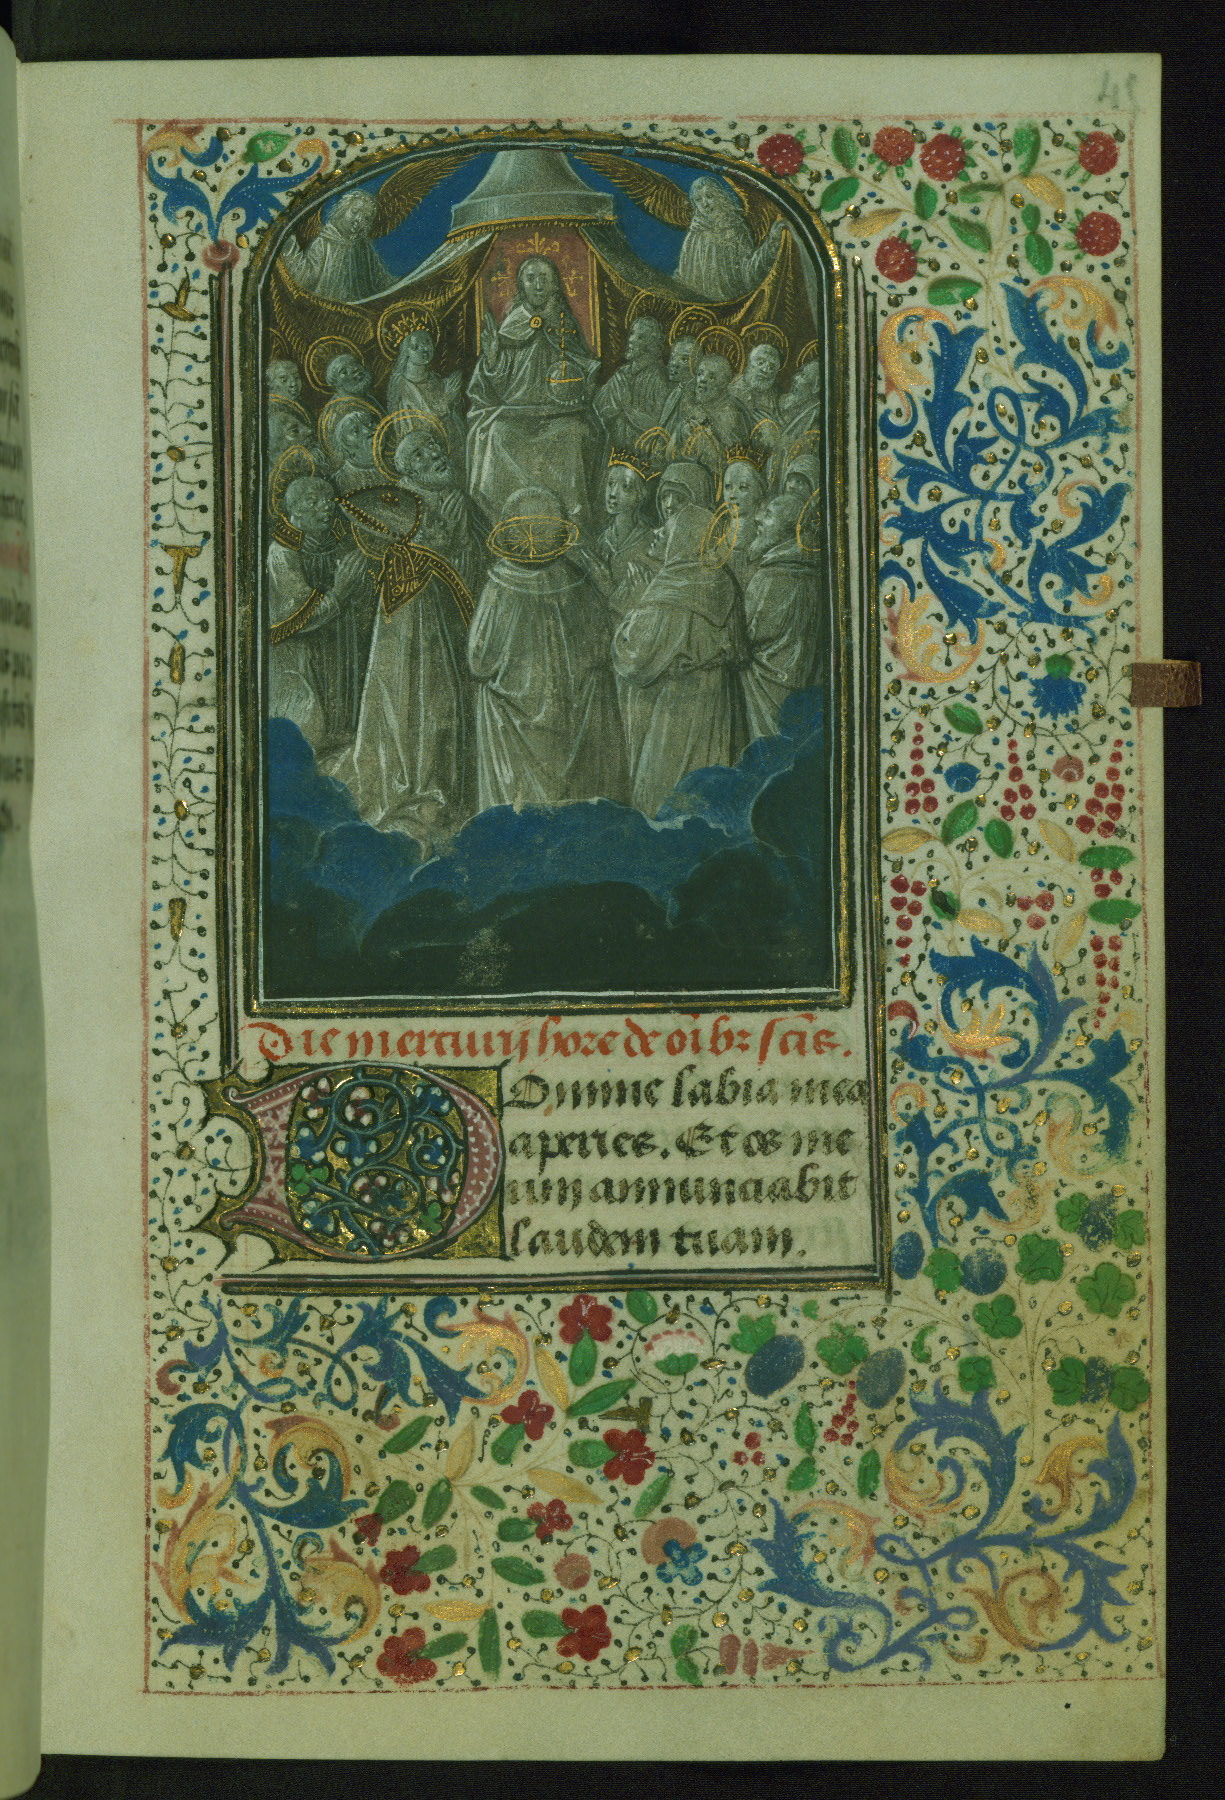 43
Die mercurij hore de oı̄bꝫ sc̄is.
Domine labia mea
aperies. Et os me
um annunciabit
laudem tuam.